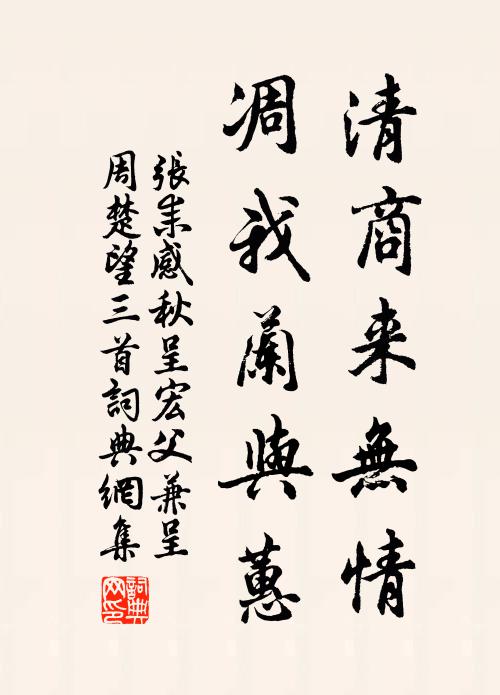 清商来無情
凋我蘭與蕙
張耒感秋呈宏父兼呈
周楚望三首詞典網集
詞典網印